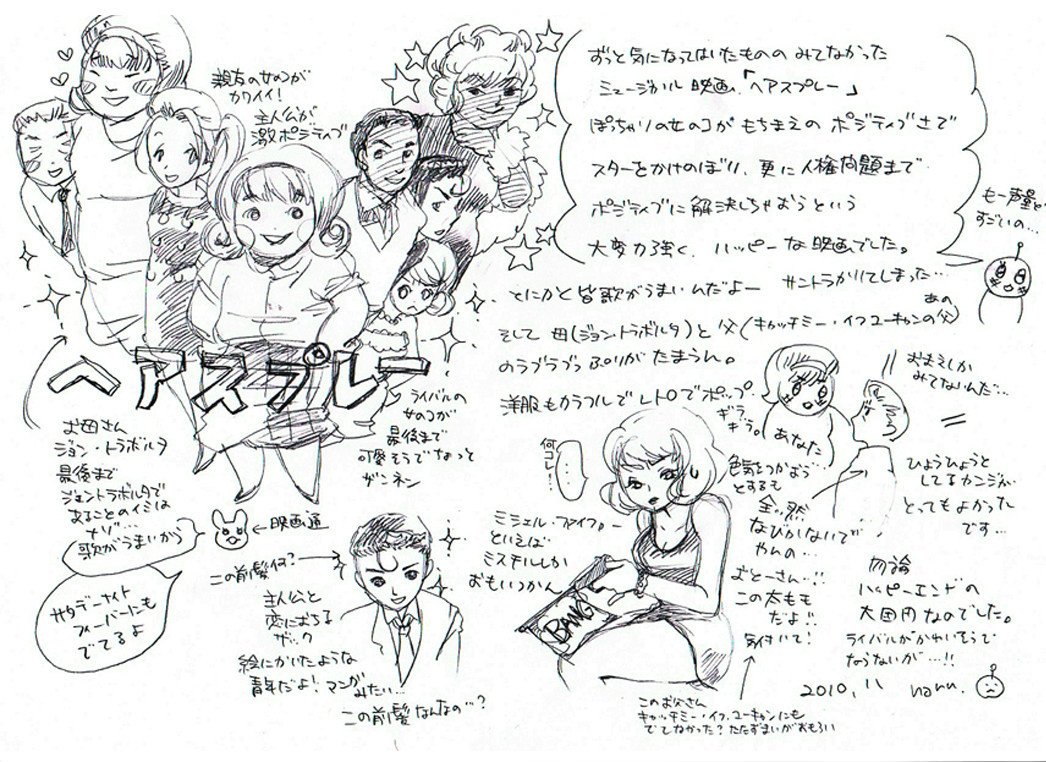 ずっと気になってはいたものの みてなかった
ミュージカル映画、「ヘアスプレー」
ぽっちゃりの女のコが もちまえの ポジティブさで
スターをかけのぼり、更に人権問題まで
ポジティブに解決しちゃおうという
大変力強く、ハッピーな映画でした。
とにかく皆歌がうまいんだよー サントラかりてしまった…
そして 母(ジョントラボルタ)と 父(キャッチミー・イフユーキャンの父)
あの
のラブラブっぷりが たまらん。
洋服もカラフルで レトロでポップ。
も一声量が
すごいの…
親友の女のコが
カワイイ!
主人公が
激ポジティブ
ヘアスプレー
お母さん
ジョン・トラボルタ
最後まで
ジョントラボルタで
あることのイミは
ナゾ…
歌がうまいから
←映画通
サタデーナイト
フィーバーにも
でてるよ
ライバルの
女のコが
最後まで
可愛そうでなっと
ザンネン
この前髪何?→
主人公と
恋におちる
ザック
絵にかいたような
青年だよ!マンガ
みたい…
この前髪なんなの…?
何コレ!
…
ミシェル・ファイファー
といえば
ミスチルしか
おもいつかん
BANG
ギラ
ギラ。
あなた
おまえしか
みてないんだ…
色気をつかおう
とするも
全っ然
なびかないで
やんの…
おとーさん…!!
この太もも
だよ!!
気付いて!
ひょうひょうと
してるカンジが
とってもよかった
です…
勿論
ハッピーエンドの
大団円なのでした。
ライバルがかわいそうで
ならないが…!!
2010, 11 nanu.
このお父さん
キャッチミー・イフ、ユーキャンにも
でてなかった?たたずまいがおもろい